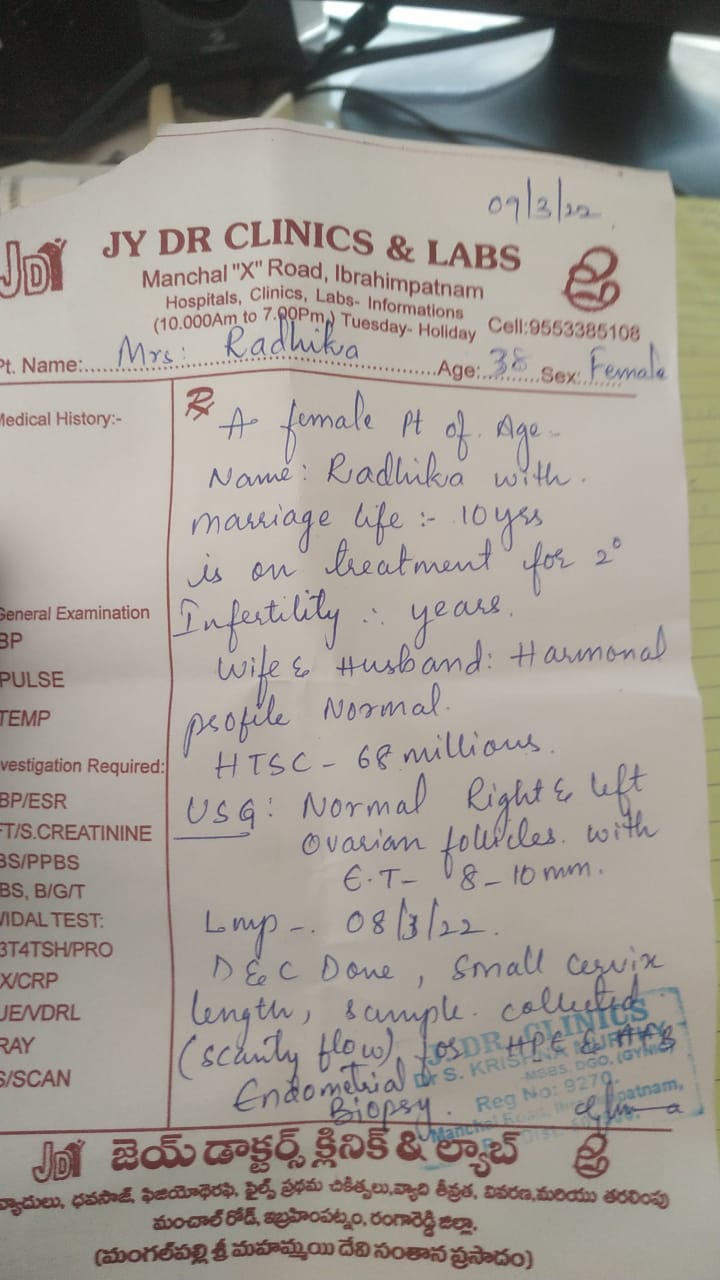 09/3/22
JDr
JY DR CLINICS & LABS
Manchal "X" Road, Ibrahimpatnam
Hospitals, Clinics, Labs- Informations
(10.000Am to 7.00Pm,) Tuesday- Holiday Cell:9553385108
Pt. Name: Mrs: Radhika Age: 38 Sex: Female
Medical History:-
General Examination
BP
PULSE
TEMP
vestigation Required:
BP/ESR
FT/S.CREATININE
BS/PPBS
BS, B/G/T
VIDAL TEST:
3T4TSH/PRO
X/CRP
UE/VDRL
RAY
S/SCAN
℞ A female Pt of Age -
Name: Radhika with
marriage life :- 10 yrs
is on treatment for 2°
Infertility ∴ years.
Wife & Husband: Harmonal
profile Normal.
HTSC - 68 millions.
USG: Normal Right & left
Ovarian follicles. with
E.T- 8-10mm.
Lmp -. 08/3/22.
D&C Done, Small Cervix
length, sample collected
(scanty flow) for HPE &
Endometrial
Biopsy.
JY DR. CLINICS
Dr S. KRISHNA
MBBS, DGO, (GYNIC)
Reg No: 9270.
Manchal Road,
JDr జెయ్ డాక్టర్స్ క్లినిక్ & ల్యాబ్
వ్యాధులు, ధవసాజ్, ఫిజియోథెరఫి, ఫైల్స్ ప్రథమ చికిత్సలు,వ్యాధి తీవ్రత, వివరణ,మరియు తరలింపు
మంచాల్ రోడ్, ఇబ్రహింపట్నం, రంగారెడ్డి జిల్లా,
(మంగల్‌పల్లి శ్రీ మహమ్మయి దేవి సంతాన ప్రసాదం)